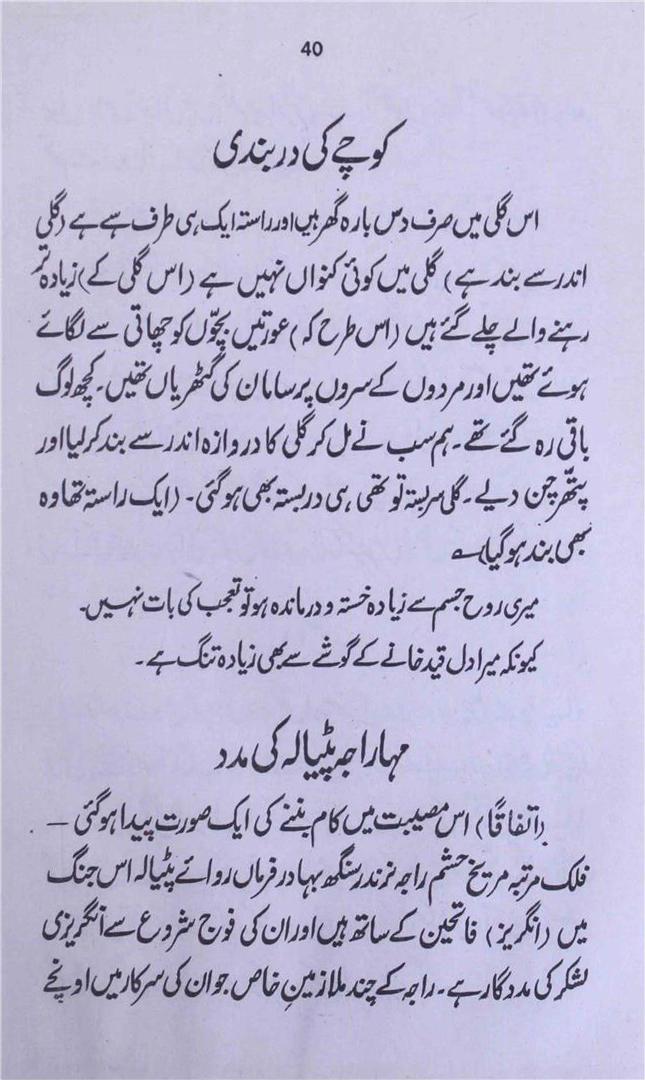 40
کوچے کی دربندی
اس گلی میں صرف دس بارہ گھر ہیں اور راستہ ایک ہی طرف سے ہے (گلی
اندر سے بند ہے) گلی میں کوئی کنواں نہیں ہے (اس گلی کے) زیادہ تر
رہنے والے چلے گئے ہیں (اس طرح کہ) عورتیں بچّوں کو چھاتی سے لگائے
ہوئے تھیں اور مردوں کے سروں پر سامان کی گٹھریاں تھیں۔ کچھ لوگ
باقی رہ گئے تھے۔ ہم سب نے مل کر گلی کا دروازہ اندر سے بند کر لیا اور
پتھّر چن دیے۔ گلی سربستہ تو تھی ہی دربستہ بھی ہوگئی۔ (ایک راستہ تھا وہ
بھی بند ہوگیا)؎
میری روح جسم سے زیادہ خستہ و درماندہ ہو تو تعجب کی بات نہیں۔
کیونکہ میرا دل قید خانے کے گوشے سے بھی زیادہ تنگ ہے۔
مہاراجہ پٹیالہ کی مدد
(اتفاقًا) اس مصیبت میں کام بننے کی ایک صورت پیدا ہوگئی —
فلک مرتبہ مریخ حشم راجہ نرندر سنگھ بہادر فرماں روائے پٹیالہ اس جنگ
میں (انگریز) فاتحین کے ساتھ ہیں اور ان کی فوج شروع سے انگریزی
لشکر کی مددگار ہے۔ راجہ کے چند ملازمینِ خاص جو ان کی سرکار میں اونچے